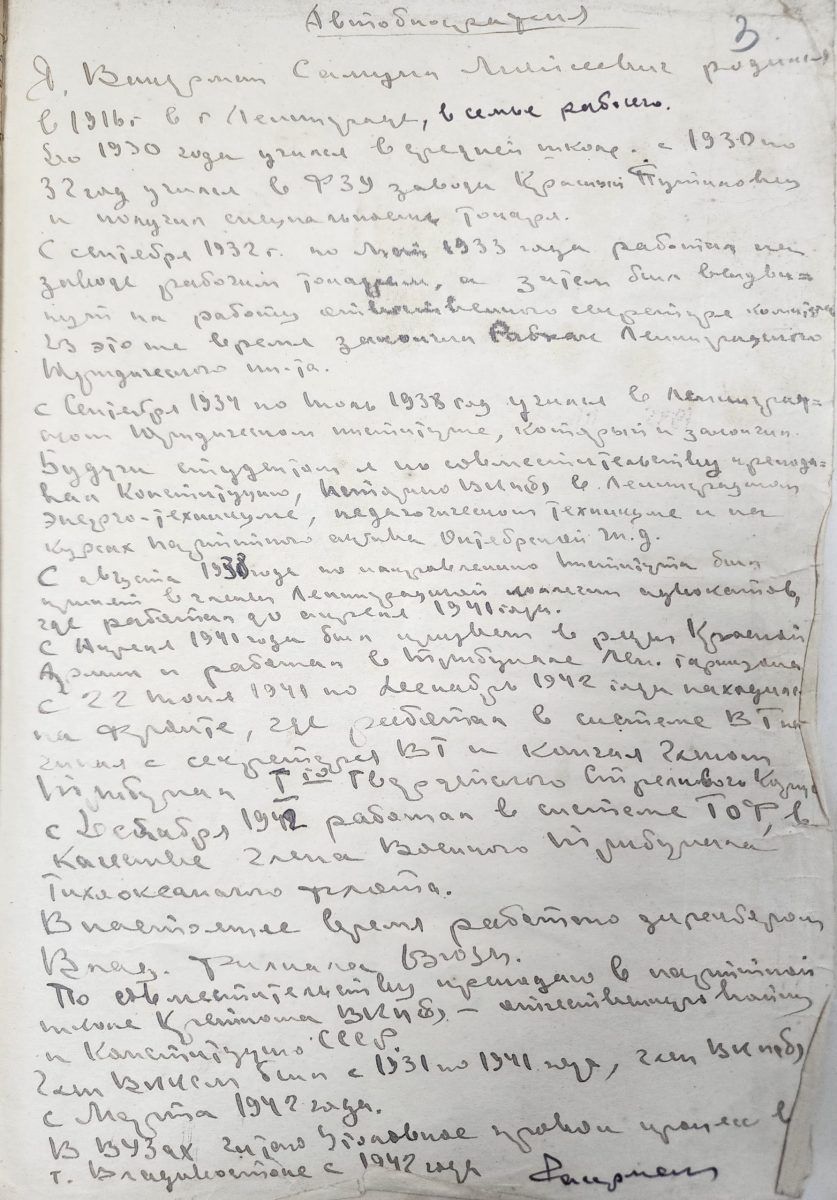 Автобиография
3
Я, Вайсман Самуил Моисеевич родился
в 1916 г в г Ленинграде, в семье рабочего.
До 1930 года учился в средней школе. с 1930 по
32 год учился в ФЗУ завода Красный Путиловец
и получил специальность токаря.
С сентября 1932 г. по 1933 года работал на
заводе рабочим токарем, а затем был выдви=
нут на работу ответственного секретаря
В это же время закончил Рабфак Ленинградского
Юридического ин-та.
с Сентября 1934 по Июль 1938 год учился в Ленинград=
ском Юридическом институте, который и закончил.
Будучи студентом я по совместительству препода=
вал Конституцию, Историю ВКП(б) в Ленинградском
энерго-техникуме, педагогическом техникуме и на
курсах партийного актива Октябрьской ж.д.
С августа 1938 года по направлению Института был
принят в члены Ленинградской коллегии адвокатов,
где работал до апреля 1941 года.
С Апреля 1941 года был призван в ряды Красной
Армии и работал в Трибунале Лен. гарнизона
С 22 Июня 1941 по Декабрь 1942 года находился
на фронте, где работал в системе ВТ на=
чиная с секретаря ВТ и кончая членом
Трибунал Iго Гвардейского Стрелкового Корпуса
с Декабря 1942 работал в системе ТОФ, в
качестве члена Военного Трибунала
Тихоокеанского флота.
В настоящее время работаю директором
Влад. филиала ВЮЗИ.
По совместительству преподаю в партийной
школе Крайкома ВКП(б) – отечественную войну
и Конституцию СССР.
Член ВЛКСМ был с 1931 по 1941 года, член ВКП(б)
с Марта 1942 года.
В ВУЗах читаю Уголовное право и процесс в
г. Владивостоке с 1942 года